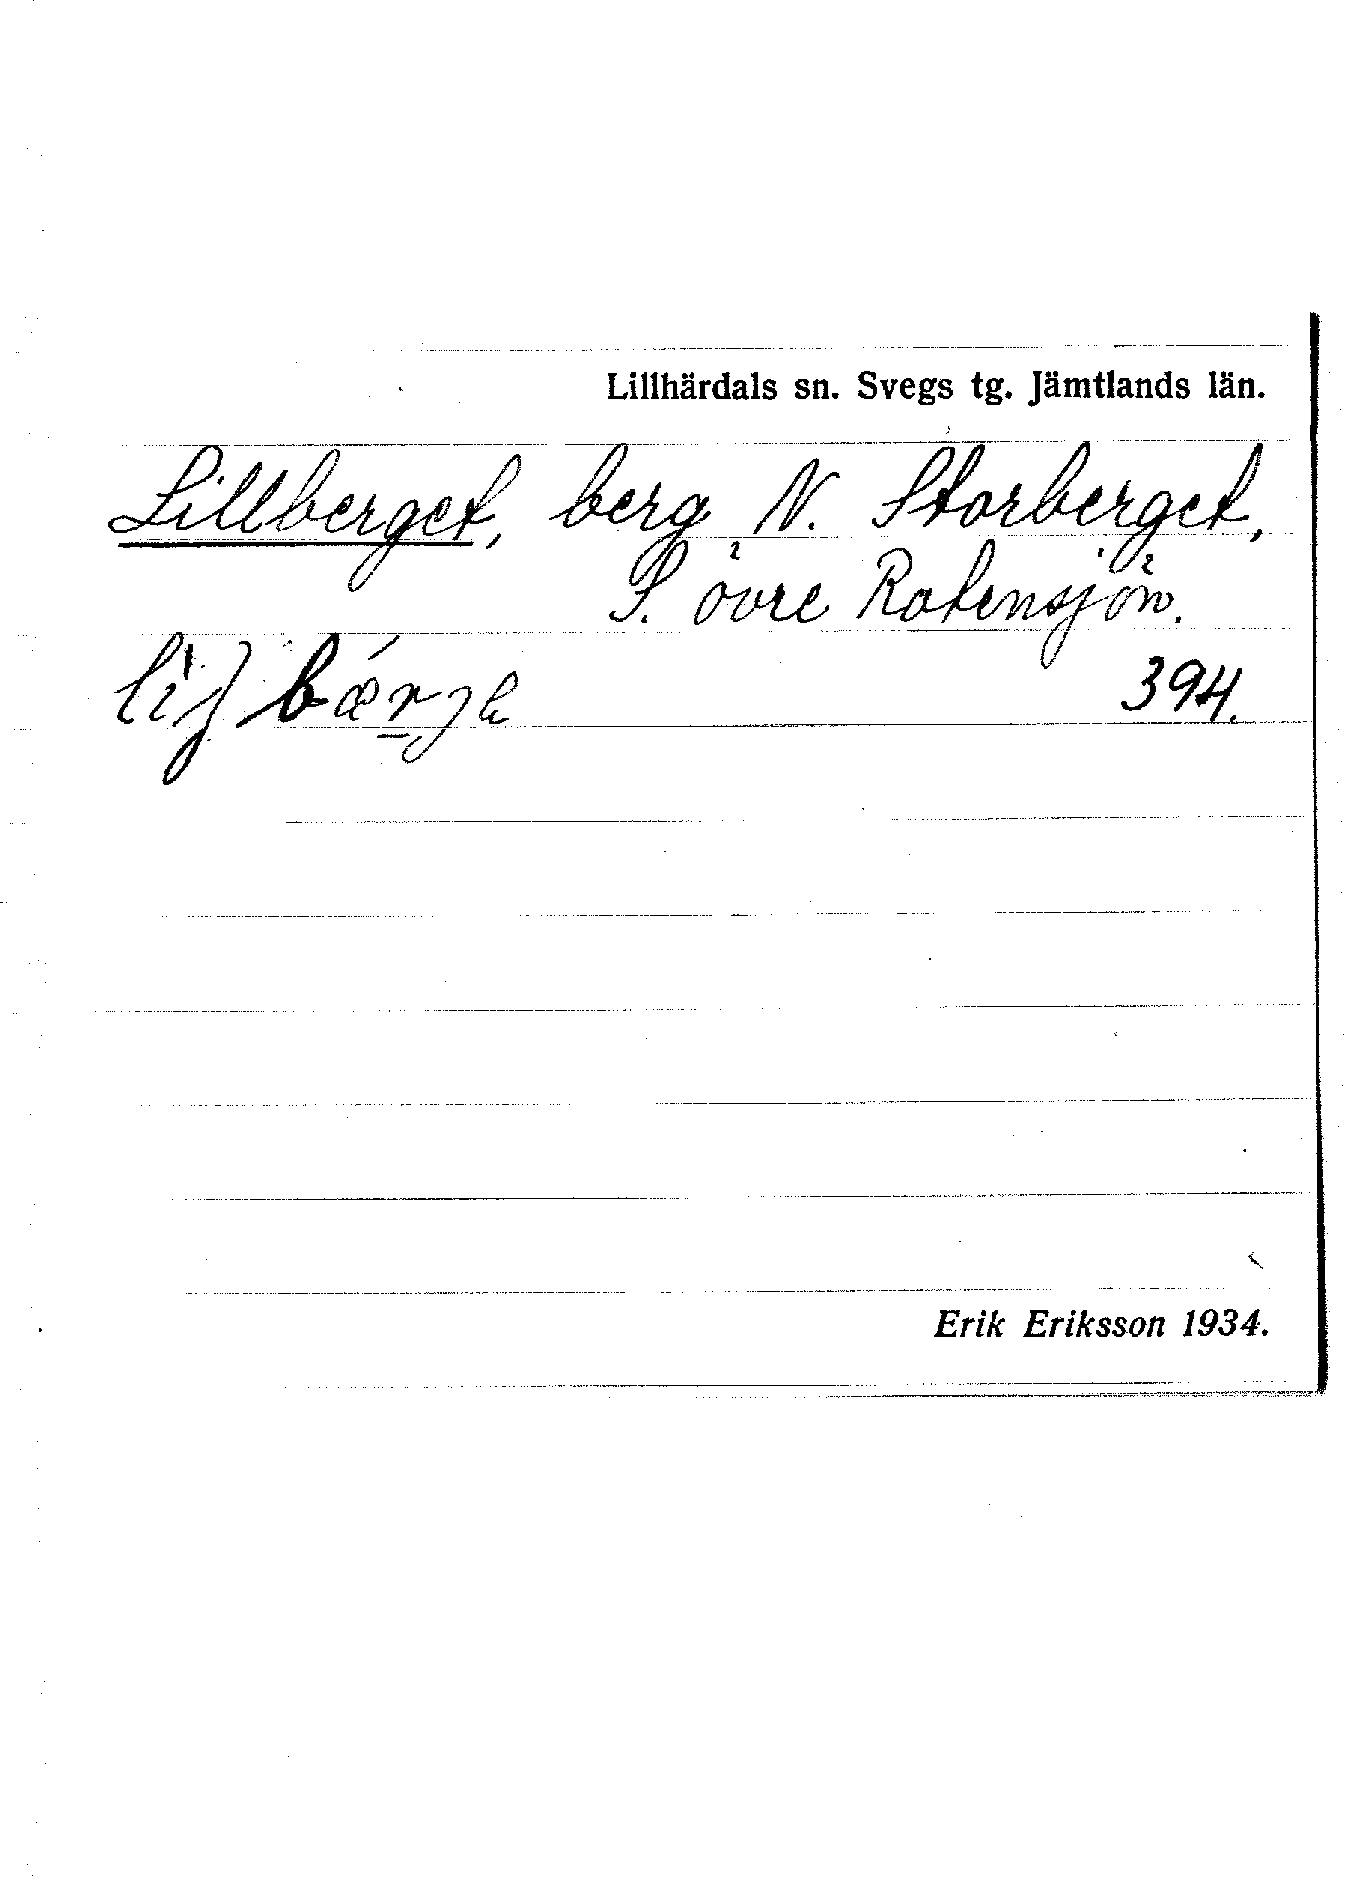 Lillhärdals sn. Svegs tg. Jämtlands län.
Lillberget, berg N. Storberget,
S. övre Rotensjön.
394.
Erik Eriksson 1934.